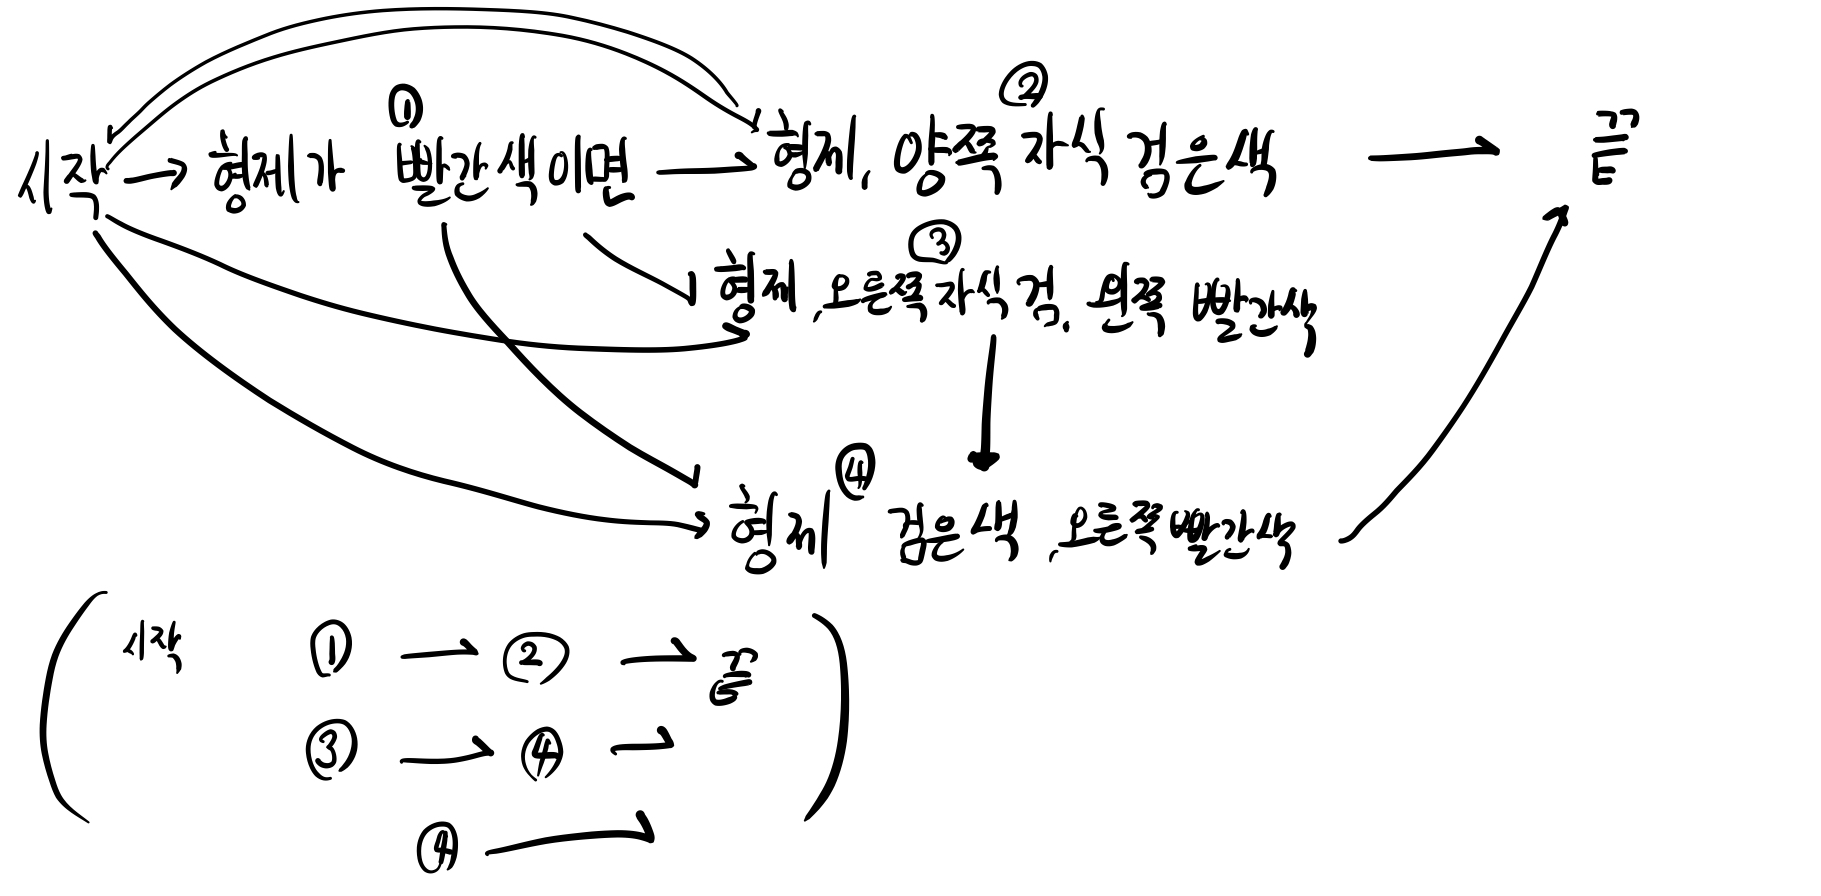 ①
②
시작 → 형제가 빨간색이면 → 형제, 양쪽 자식 검은색 → 끝
③
형제, 오른쪽 자식 검, 왼쪽 빨간색
④
형제 검은색, 오른쪽 빨간색
( 시작 ① → ② → 끝 )
③ → ④ →
④ →